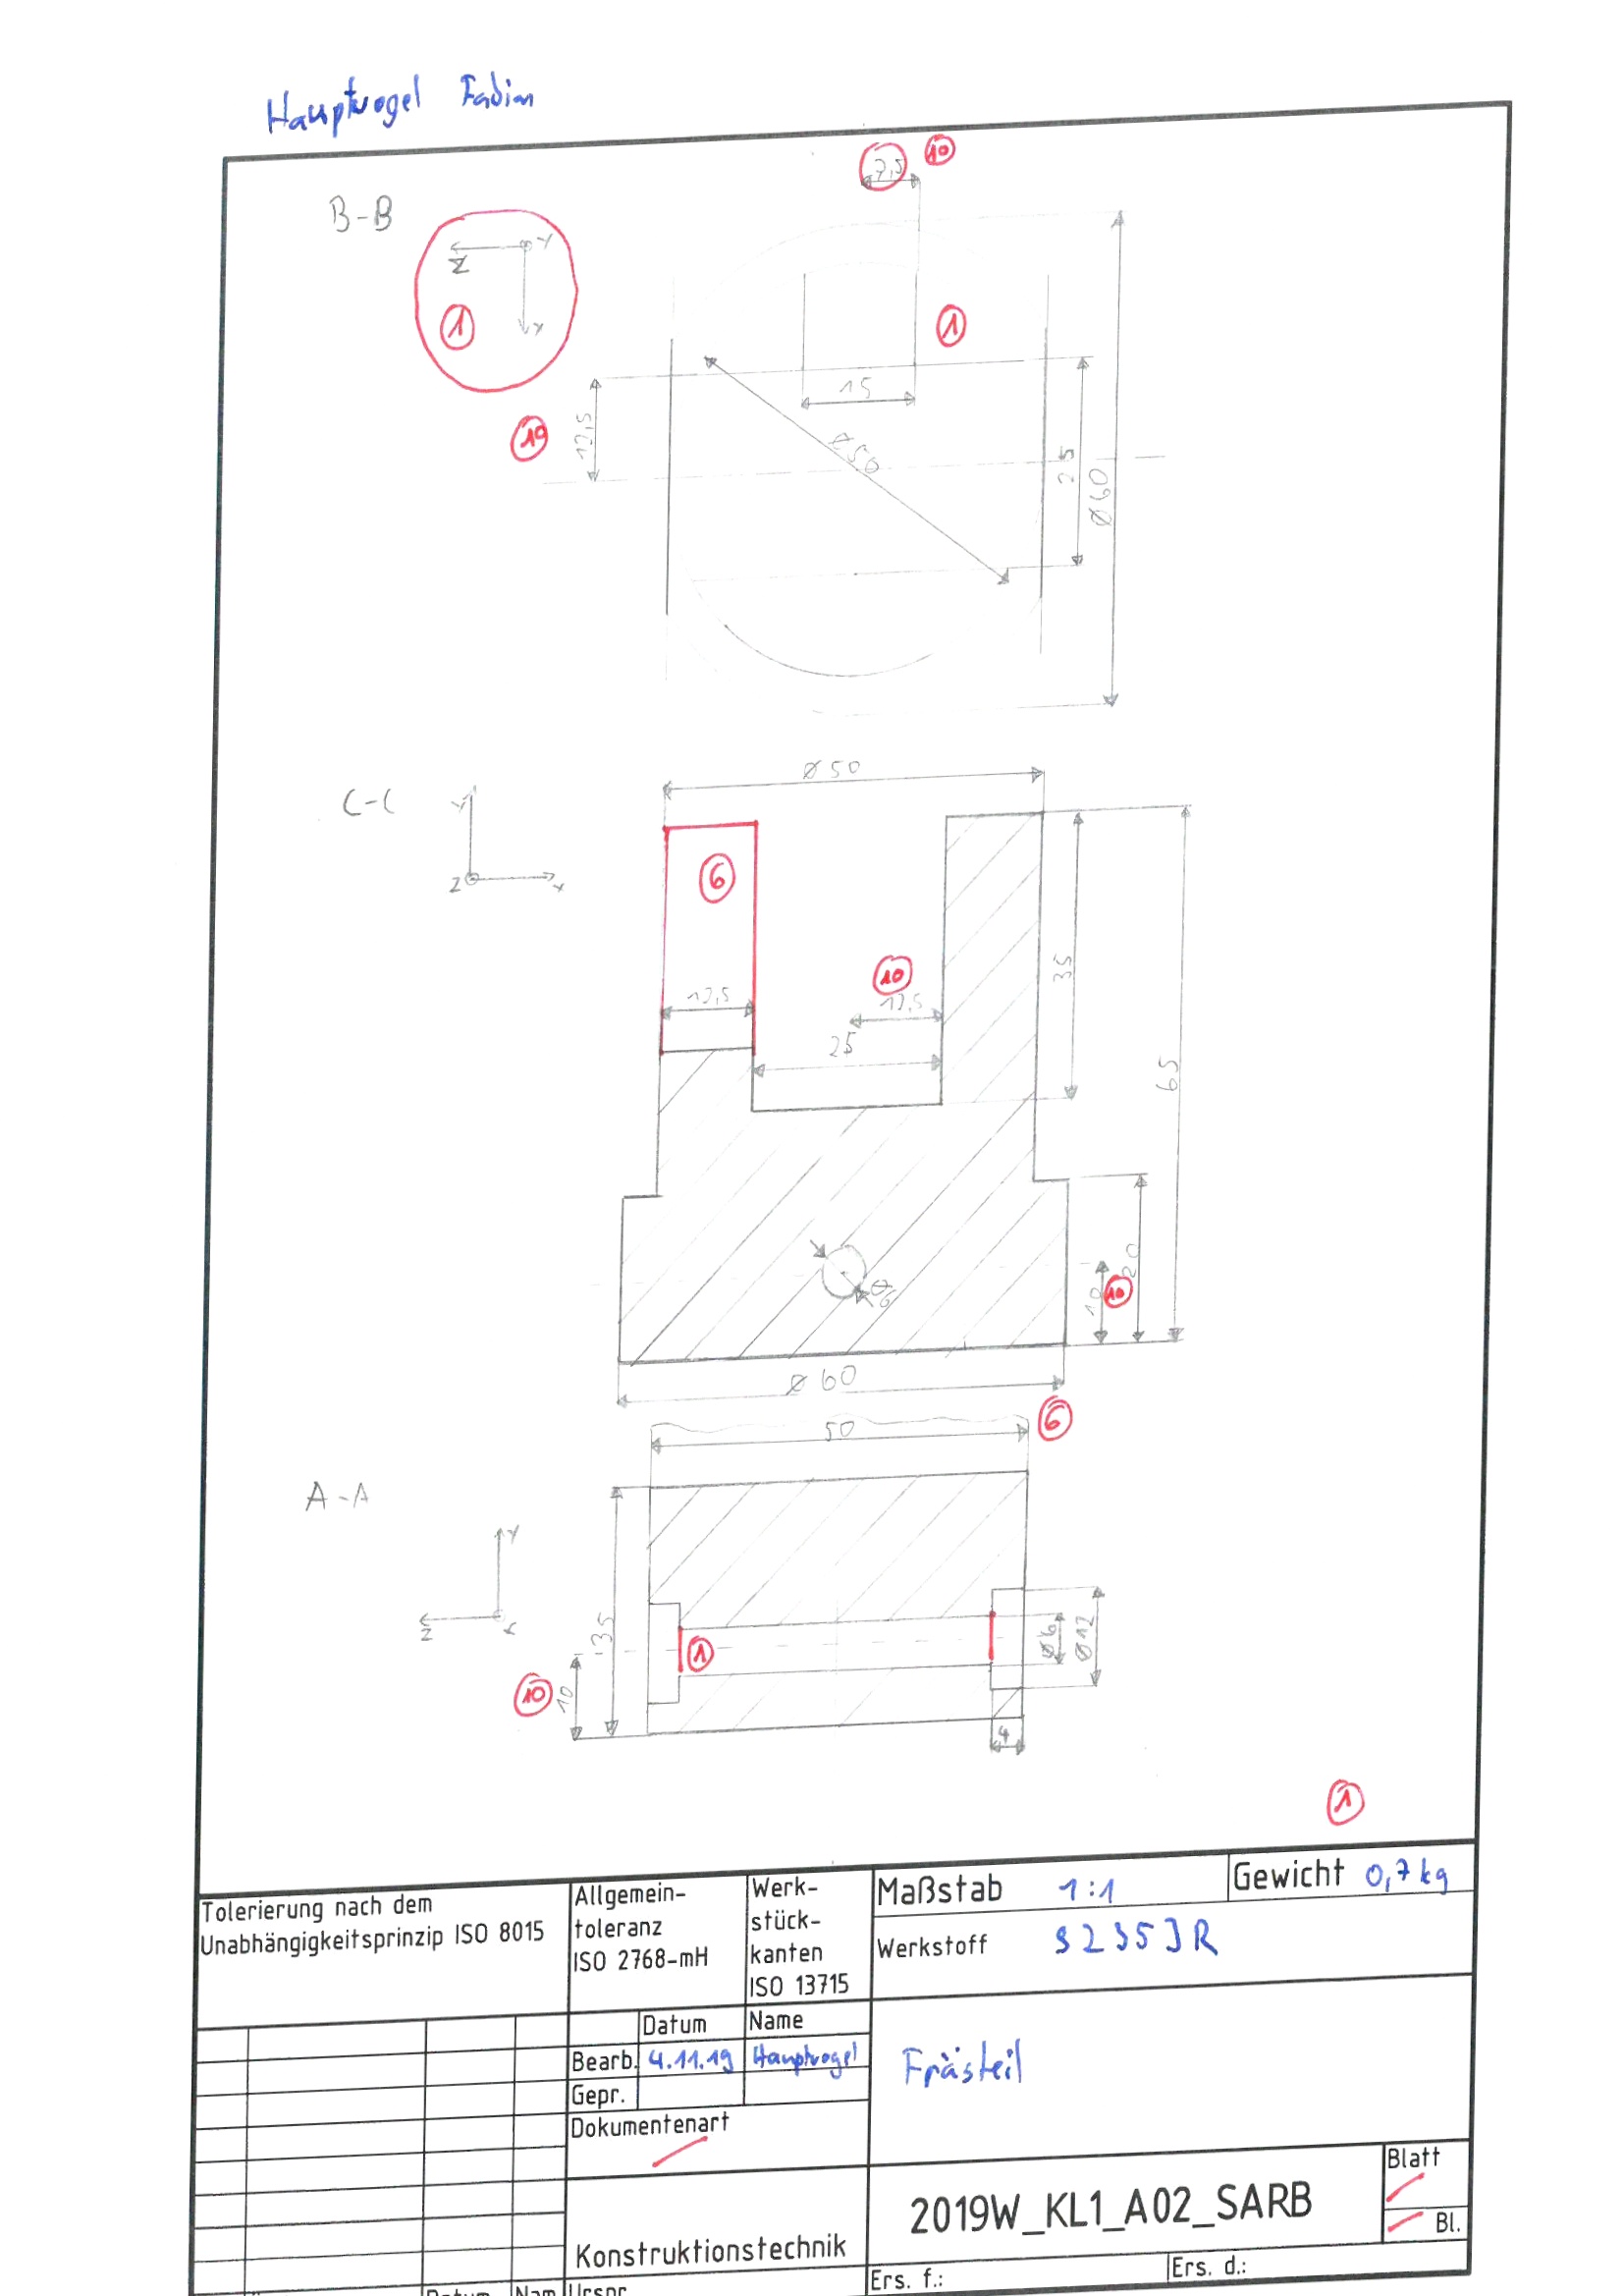 Hauptvogel Fabian
7,5 10
B-B
Y
Z
1
X
1
15
12,5
19
Ø50
25
Ø60
Ø 50
C-C
Y
Z
X
6
10
12,5
12,5
25
35
65
Ø6
20
10
10
Ø 60
6
50
A-A
Y
Z
X
35
1
10
10
Ø6
Ø12
4
1
Tolerierung nach dem
Unabhängigkeitsprinzip ISO 8015
Allgemein-
toleranz
ISO 2768-mH
Werk-
stück-
kanten
ISO 13715
Maßstab 1:1
Gewicht 0,7kg
Werkstoff S235JR
Datum Name
Bearb. 4.11.19 Hauptvogel
Gepr.
Frästeil
Dokumentenart
Konstruktionstechnik
2019W_KL1_A02_SARB
Blatt
Bl.
Ers. f.:
Ers. d.: